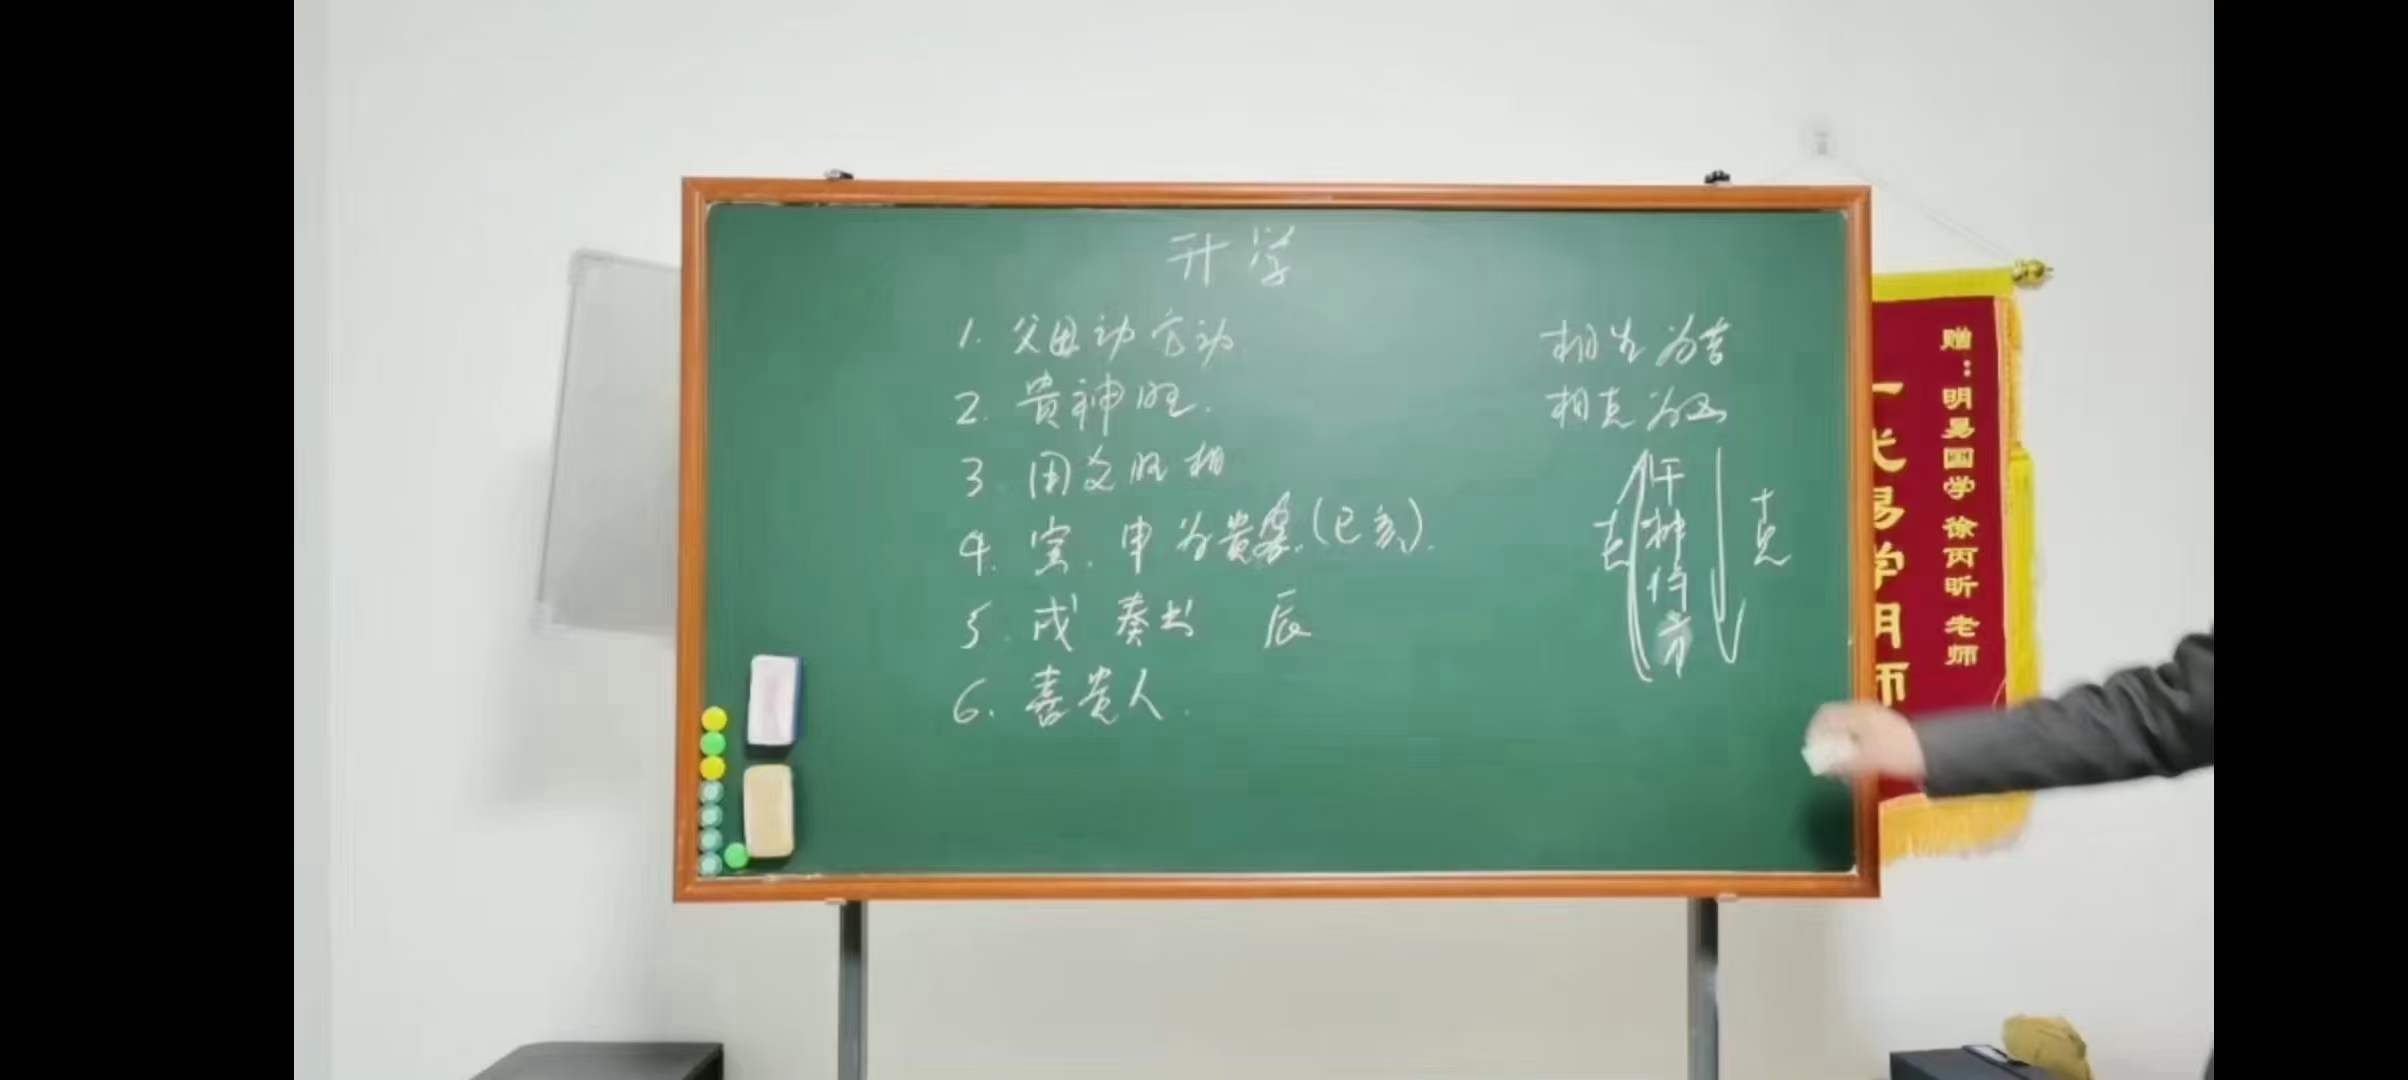 升学
1. 父母动官动
2. 贵神旺.
3 用爻旺相
4. 寅.申为贵客.(巳亥).
5. 戌 奏书 辰
6. 喜贵人.
相生为吉
相克为凶
干
神
将
方
克
克
赠：明易国学 徐丙昕 老师
易学明师